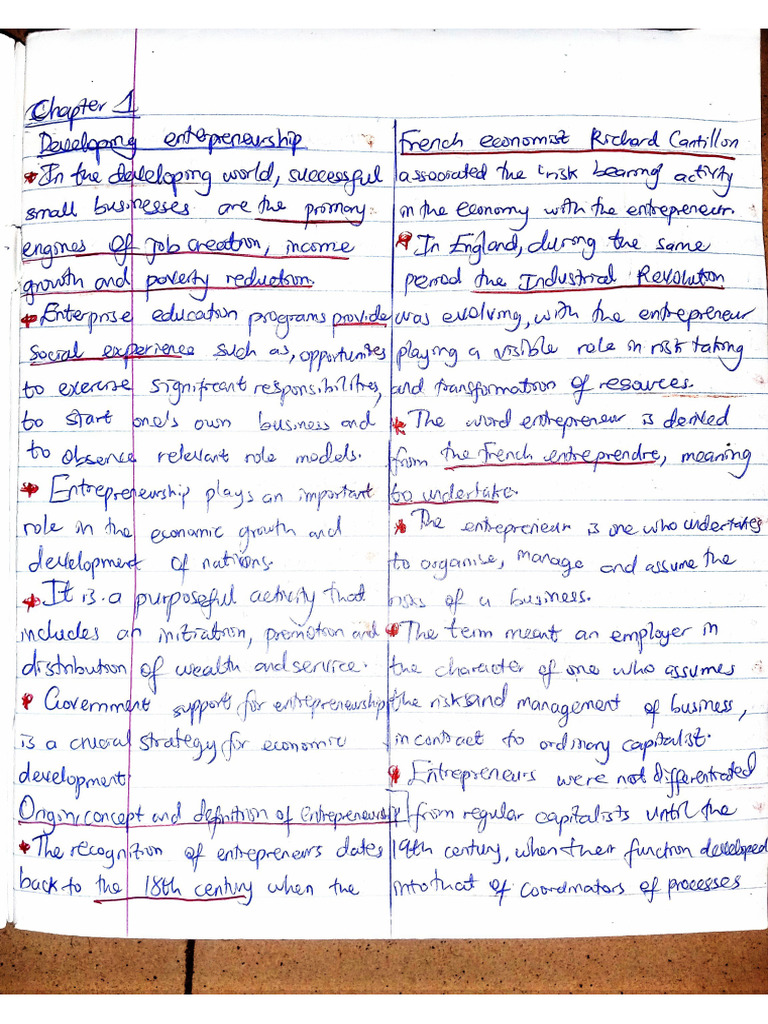 Chapter 1
Developing enterpreneurship
* In the developing world, successful
small businesses are the primary
engines of job creation, income
growth and poverty reduction.
* Enterprise education programs provide
social experience such as, opportunites
to exercise significant responsibilities,
to start one's own business and
to observe relevant role models.
* Entrepreneurship plays an important
role in the economic growth and
development of nations.
* It is a purposeful activity that
includes an initiation, promotion and
distribution of wealth and service.
* Government support for entrepreneurship
is a crucial strategy for economic
development
Origin, concept and definition of Entrepreneurship
* The recognition of entrepreneurs dates
back to the 18th century when the
French economist Richard Cantillon
associated the "risk bearing activity
in the economy with the entrepreneur.
* In England, during the same
period the Industrial Revolution
was evolving, with the entrepreneur
playing a visible role in risk taking
and transformation of resources.
* The word entrepreneur is derived
from the French entreprendre, meaning
to undertake.
* The entrepreneur is one who undertakes
to organise, manage and assume the
risks of a business.
* The term meant an employer in
the character of one who assumes
the risks and management of business,
in contract to ordinary capitalist.
* Entrepreneurs were not differentrated
from regular capitalists until the
19th century, when their function developed
into that of coordinators of processes